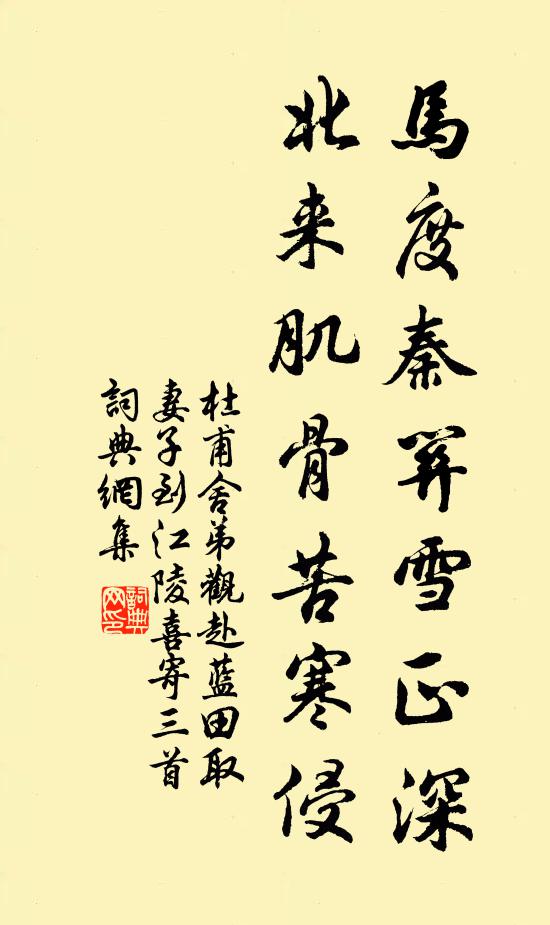 馬度秦關雪正深
北来肌骨苦寒侵
杜甫舍弟觀赴藍田取
妻子到江陵喜寄三首
詞典網集
詞典網印